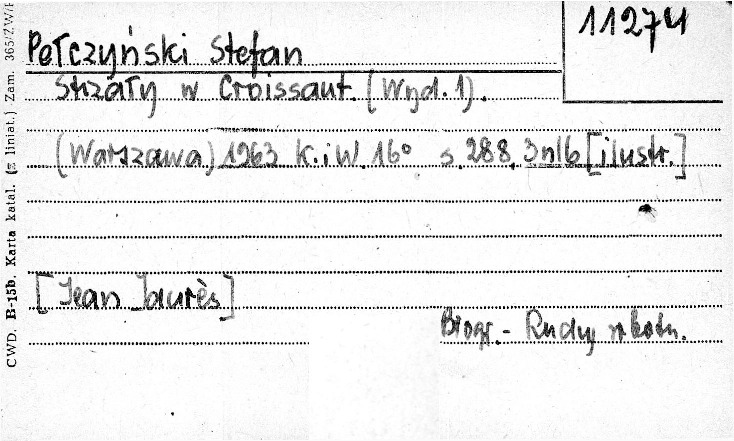 11274
Pełczyński Stefan
Strzały w Croissant. (Wyd. 1).
(Warszawa) 1963 K. i W. 16° s. 288, 3 nlb [ilustr.]
[Jean Jaurès]
Biogr. - Ruchy robotn.
CWD. B-15b. Karta katal. (z liniat.) Zam. 365/ZW/